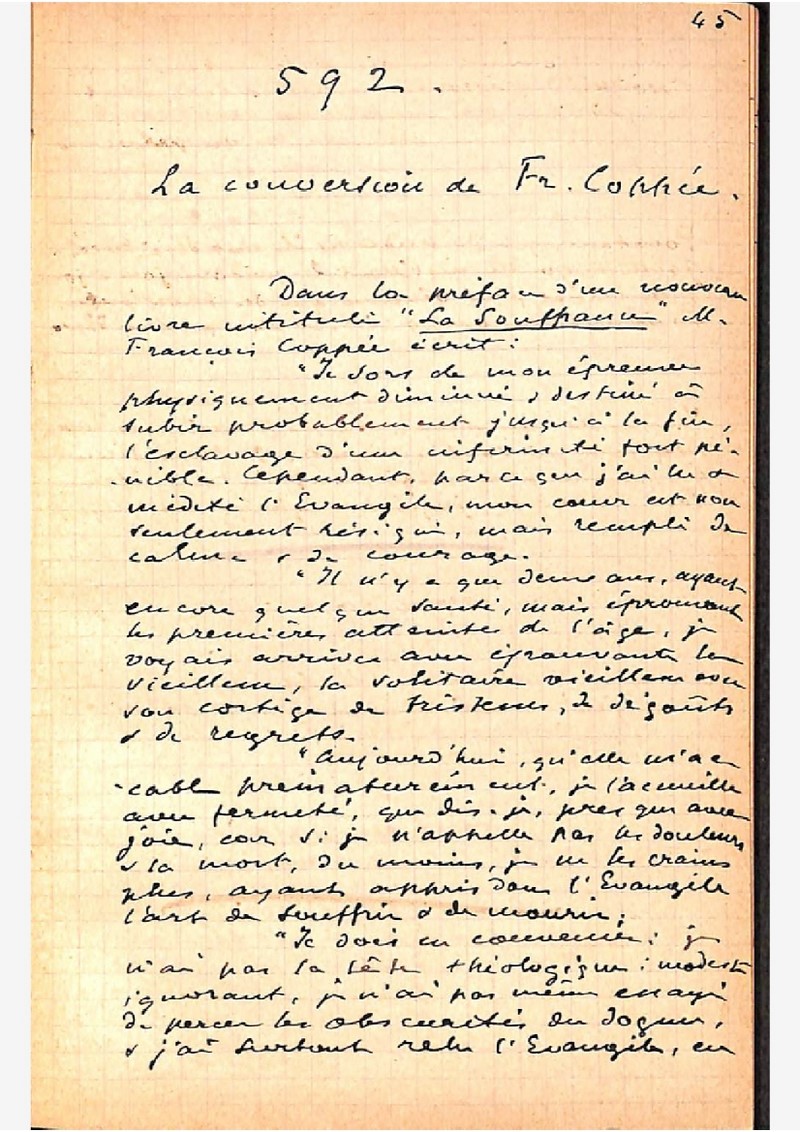 45
592.
La conversion de Fr. Coppée.
Dans la préface d'un nouveau
livre intitulé "La Souffrance" M.
François Coppée écrit :
"Je sors de mon épreuve
physiquement diminué & destiné à
subir probablement jusqu'à la fin,
l'esclavage d'une infirmité fort pé-
-nible. Cependant, parce que j'ai lu &
médité l'Evangile, mon cœur est non
seulement résigné, mais rempli de
calme & de courage.
"Il n'y a que deux ans, ayant
encore quelque santé, mais éprouvant
les premières atteintes de l'âge, je
voyais arriver avec épouvante la
vieillesse, la solitaire vieillesse avec
son cortège de tristesses, de dégoûts
& de regrets.
"Aujourd'hui, qu'elle m'ac-
-cable prématurément, je l'accueille
avec fermeté, que dis-je, presque avec
joie, car si je n'appelle pas les douleurs
& la mort, du moins, je ne les crains
plus, ayant appris dans l'Evangile
l'art de souffrir & de mourir.
"Je dois en convenir : je
n'ai pas la tête théologique : modeste
ignorant, je n'ai pas même essayé
de percer les obscurités du dogme,
& j'ai surtout relu l'Evangile, en